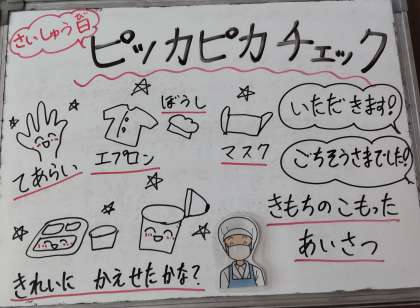 さいしゅう日
ピッカピカチェック
ぼうし
いただきます!
てあらい
エプロン
マスク
ごちそうさまでした!
きもちのこもった
あいさつ
きれいに かえせたかな?